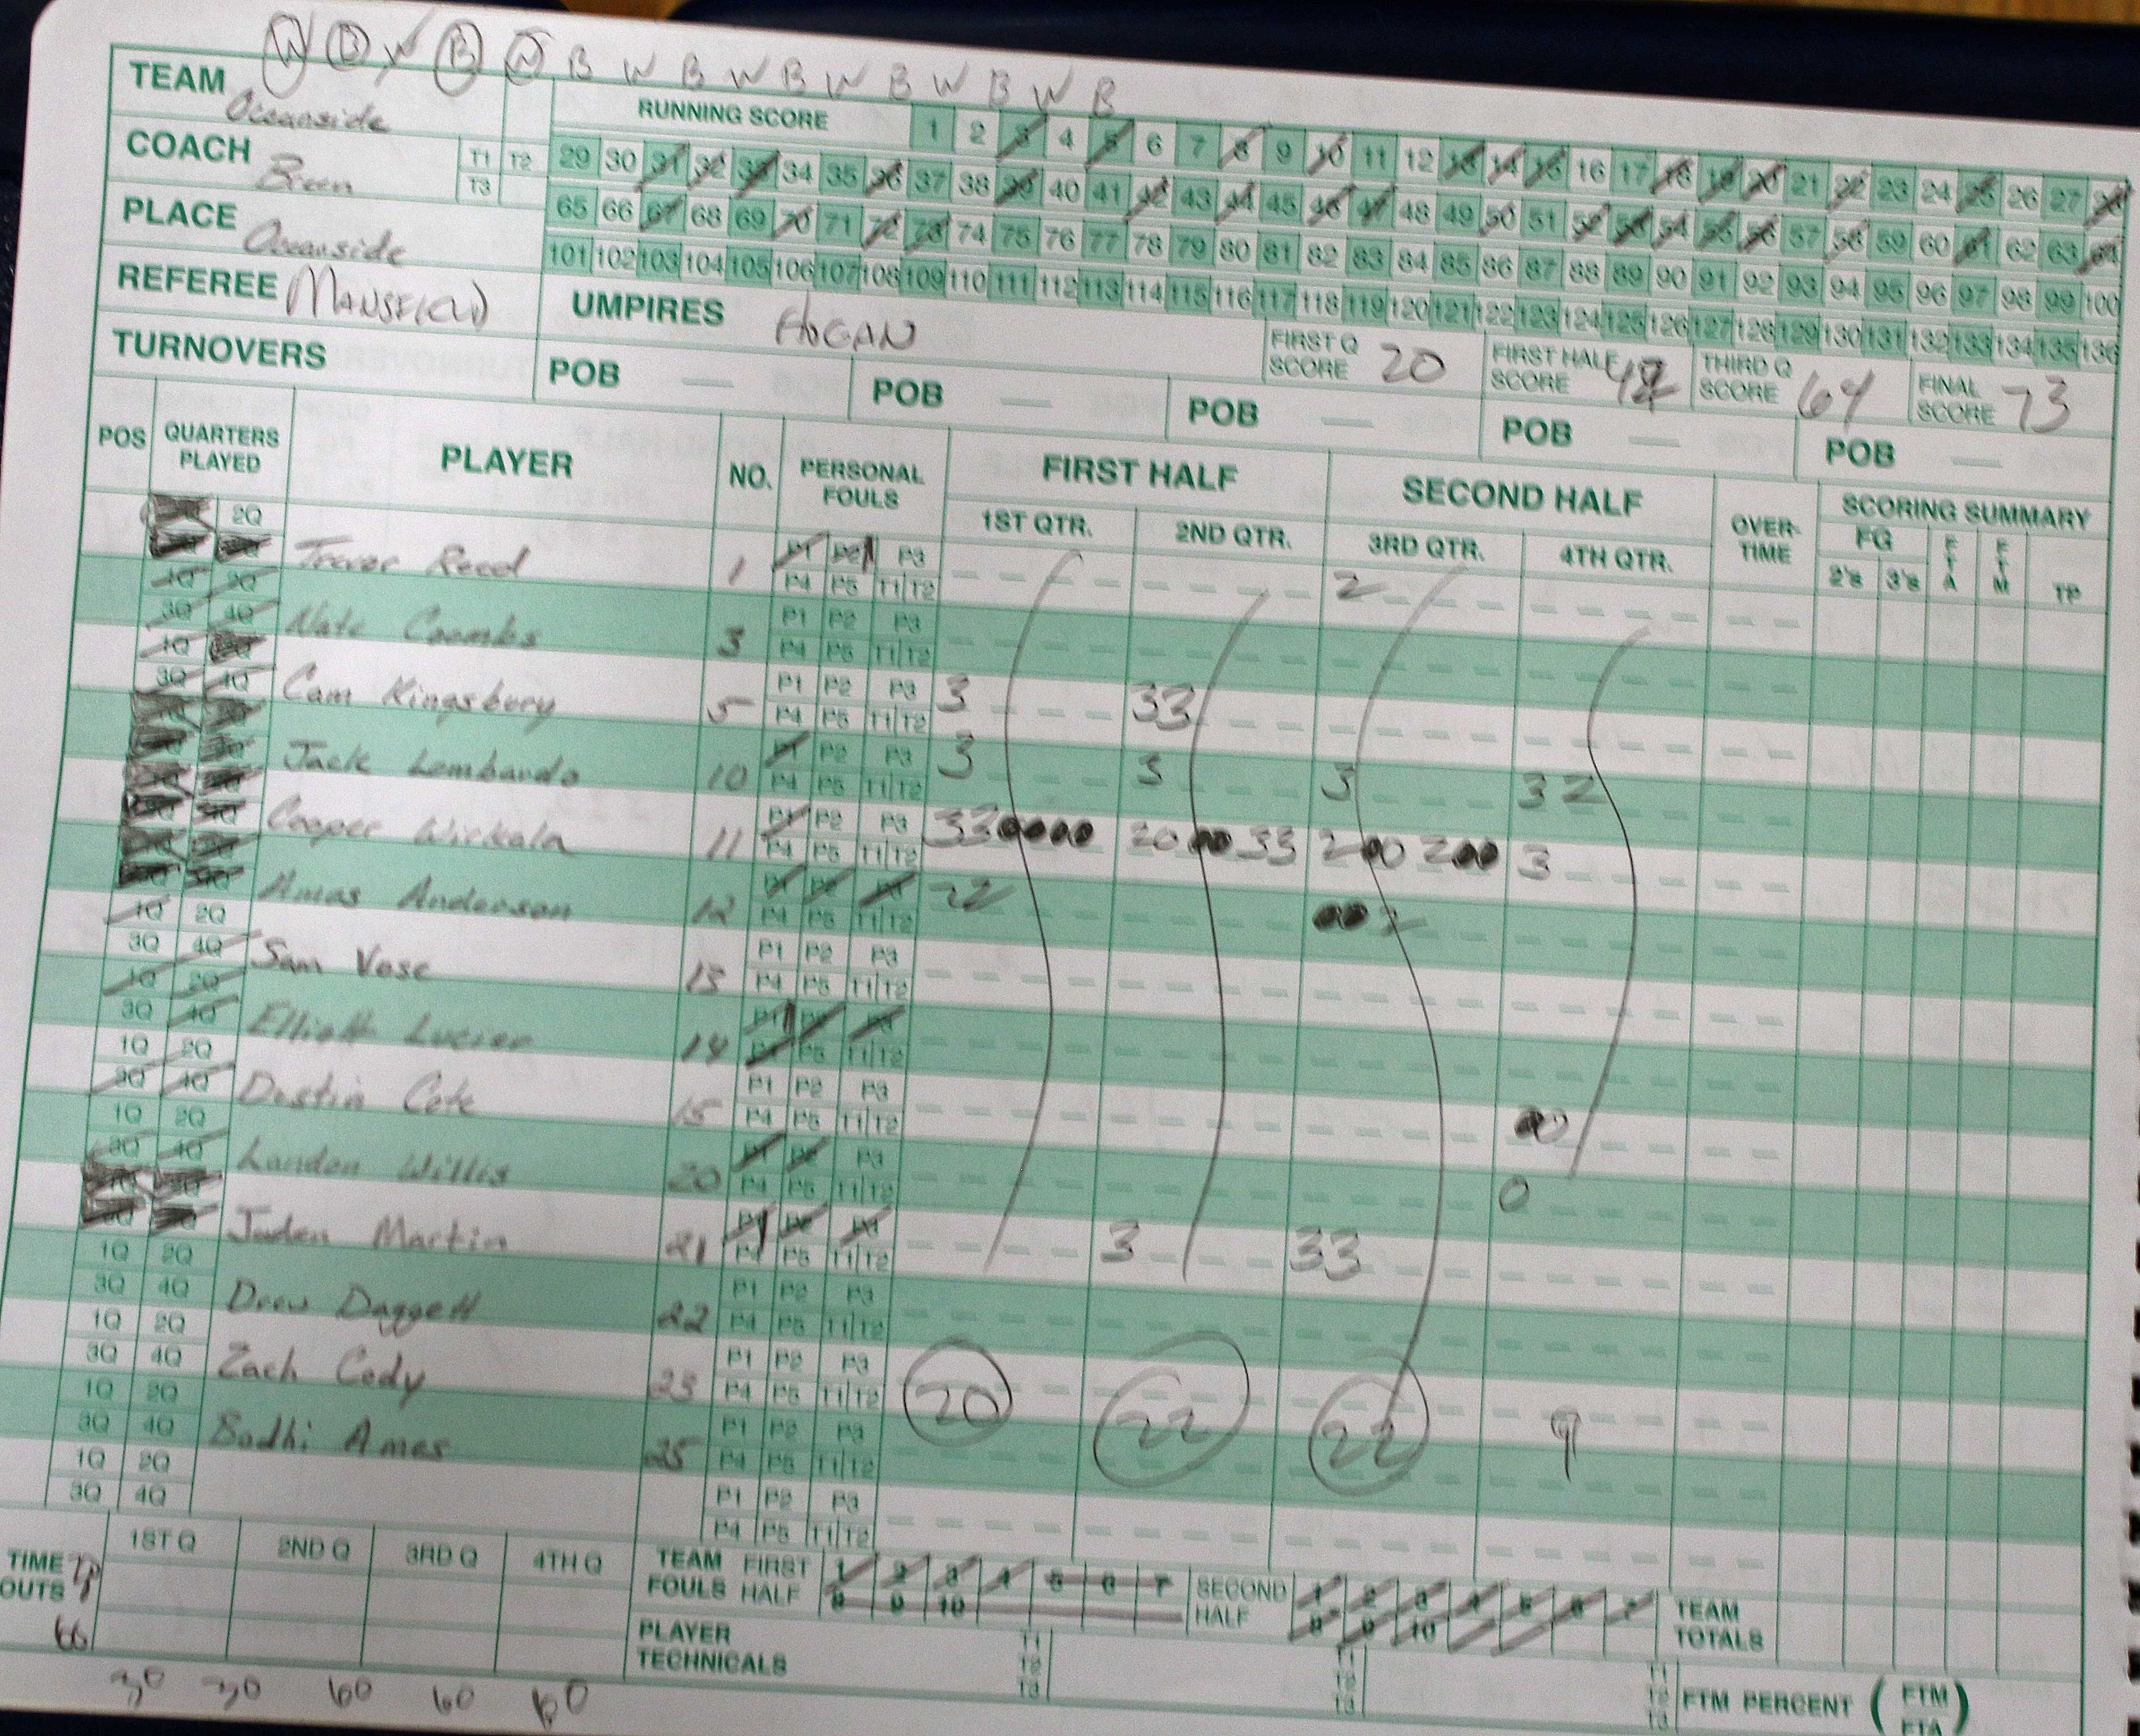 W B W B W B W B W B W B W B W B
TEAM Oceanside
RUNNING SCORE 1 2 3 4 5 6 7 8 9 10 11 12 13 14 15 16 17 18 19 20 21 22 23 24 25 26 27 28
COACH Breen T1 T2 T3
29 30 31 32 33 34 35 36 37 38 39 40 41 42 43 44 45 46 47 48 49 50 51 52 53 54 55 56 57 58 59 60 61 62 63 64
PLACE Oceanside
65 66 67 68 69 70 71 72 73 74 75 76 77 78 79 80 81 82 83 84 85 86 87 88 89 90 91 92 93 94 95 96 97 98 99 100
101 102 103 104 105 106 107 108 109 110 111 112 113 114 115 116 117 118 119 120 121 122 123 124 125 126 127 128 129 130 131 132 133 134 135 136
REFEREE UMPIRES HOGAN
FIRST Q SCORE 20 FIRST HALF SCORE 42 THIRD Q SCORE 64 FINAL SCORE 73
TURNOVERS POB — POB — POB — POB — POB —
POS QUARTERS PLAYED PLAYER NO. PERSONAL FOULS FIRST HALF SECOND HALF OVER-TIME SCORING SUMMARY
1ST QTR. 2ND QTR. 3RD QTR. 4TH QTR. FG 2's 3's FTA FTM TP
2Q Trevor Reed 1 P1 P2 P3 P4 P5 T1 T2 2
1Q 2Q 3Q 4Q Nate Coombs 3 P1 P2 P3 P4 P5 T1 T2
1Q 3Q 4Q Cam Kingsbury 5 P1 P2 P3 P4 P5 T1 T2 3 33
Jack Lombardo 10 P1 P2 P3 P4 P5 T1 T2 3 3 3 32
Cooper Wirkala 11 P1 P2 P3 P4 P5 T1 T2 330000 200033 200200 3
Amas Anderson 12 P1 P2 P3 P4 P5 T1 T2 22 00 2
1Q 2Q 3Q 4Q Sam Vose 13 P1 P2 P3 P4 P5 T1 T2
1Q 2Q 3Q 4Q Elliott Lucier 14 P1 P2 P3 P4 P5 T1 T2
1Q 2Q 3Q 4Q Dustin Cote 15 P1 P2 P3 P4 P5 T1 T2 00
1Q 2Q 3Q 4Q Landon Willis 20 P1 P2 P3 P4 P5 T1 T2 0
Jaden Martin 21 P1 P2 P3 P4 P5 T1 T2 3 33
1Q 2Q 3Q 4Q Drew Daggett 22 P1 P2 P3 P4 P5 T1 T2
1Q 2Q 3Q 4Q Zach Cody 23 P1 P2 P3 P4 P5 T1 T2 20 22 22 9
1Q 2Q 3Q 4Q Bodhi Ames 25 P1 P2 P3 P4 P5 T1 T2
1Q 2Q 3Q 4Q P1 P2 P3 P4 P5 T1 T2
TIME OUTS 1ST Q 2ND Q 3RD Q 4TH Q
TEAM FOULS FIRST HALF 1 2 3 4 5 6 7 8 9 10 SECOND HALF 1 2 3 4 5 6 7 8 9 10 TEAM TOTALS
PLAYER TECHNICALS T1 T2 T3 T1 T2 T3 T1 T2 T3 FTM PERCENT (FTM FTA)
30 30 60 60 60